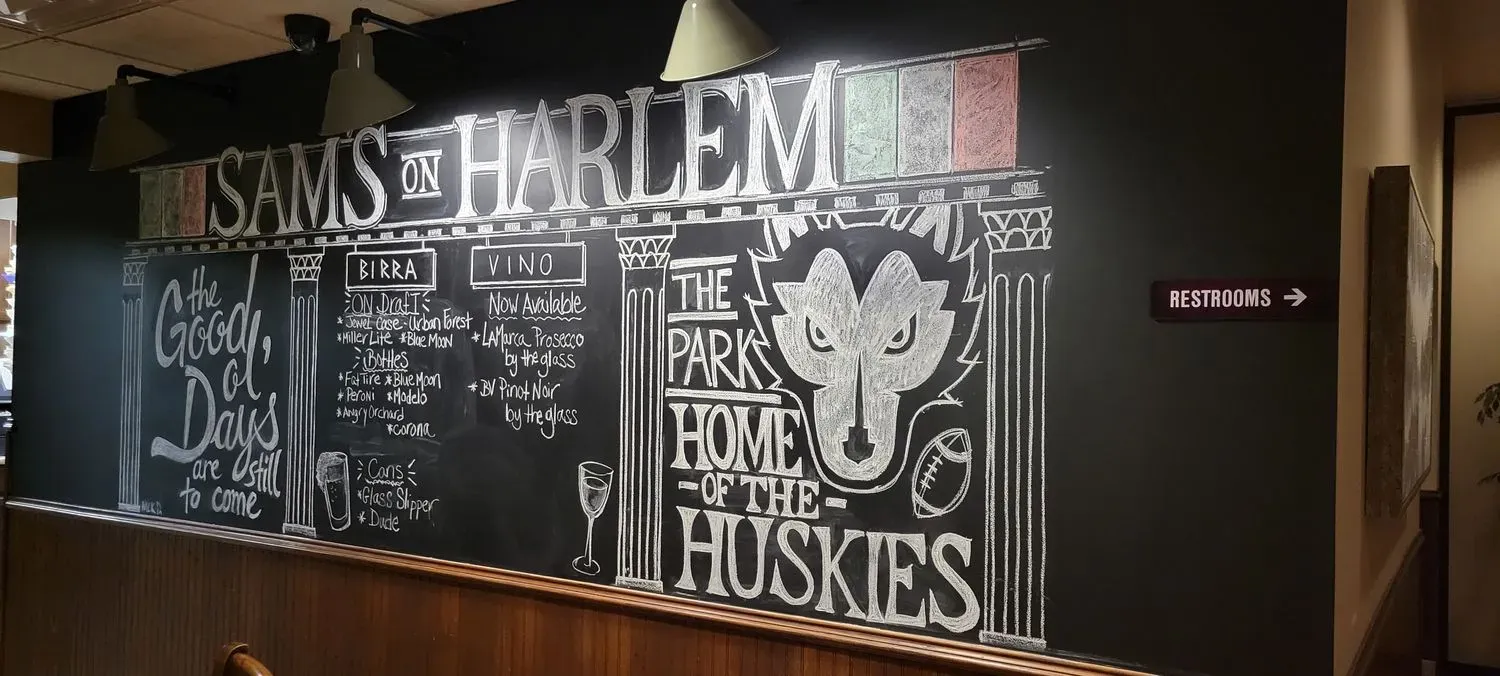 SAMS ON HARLEM
the
Good,
ol
Days
are still
to come
BIRRA
ON Draft
* Jewel Case - Urban Forest
* Miller Lite * Blue Moon
Bottles
* Fat Tire * Blue Moon
* Peroni * Modelo
* Angry Orchard
* Corona
Cans
* Glass Slipper
* Dude
VINO
Now Available
* LaMarca Prosecco
by the glass
* BV Pinot Noir
by the glass
THE
PARK
HOME
- OF THE -
HUSKIES
RESTROOMS →